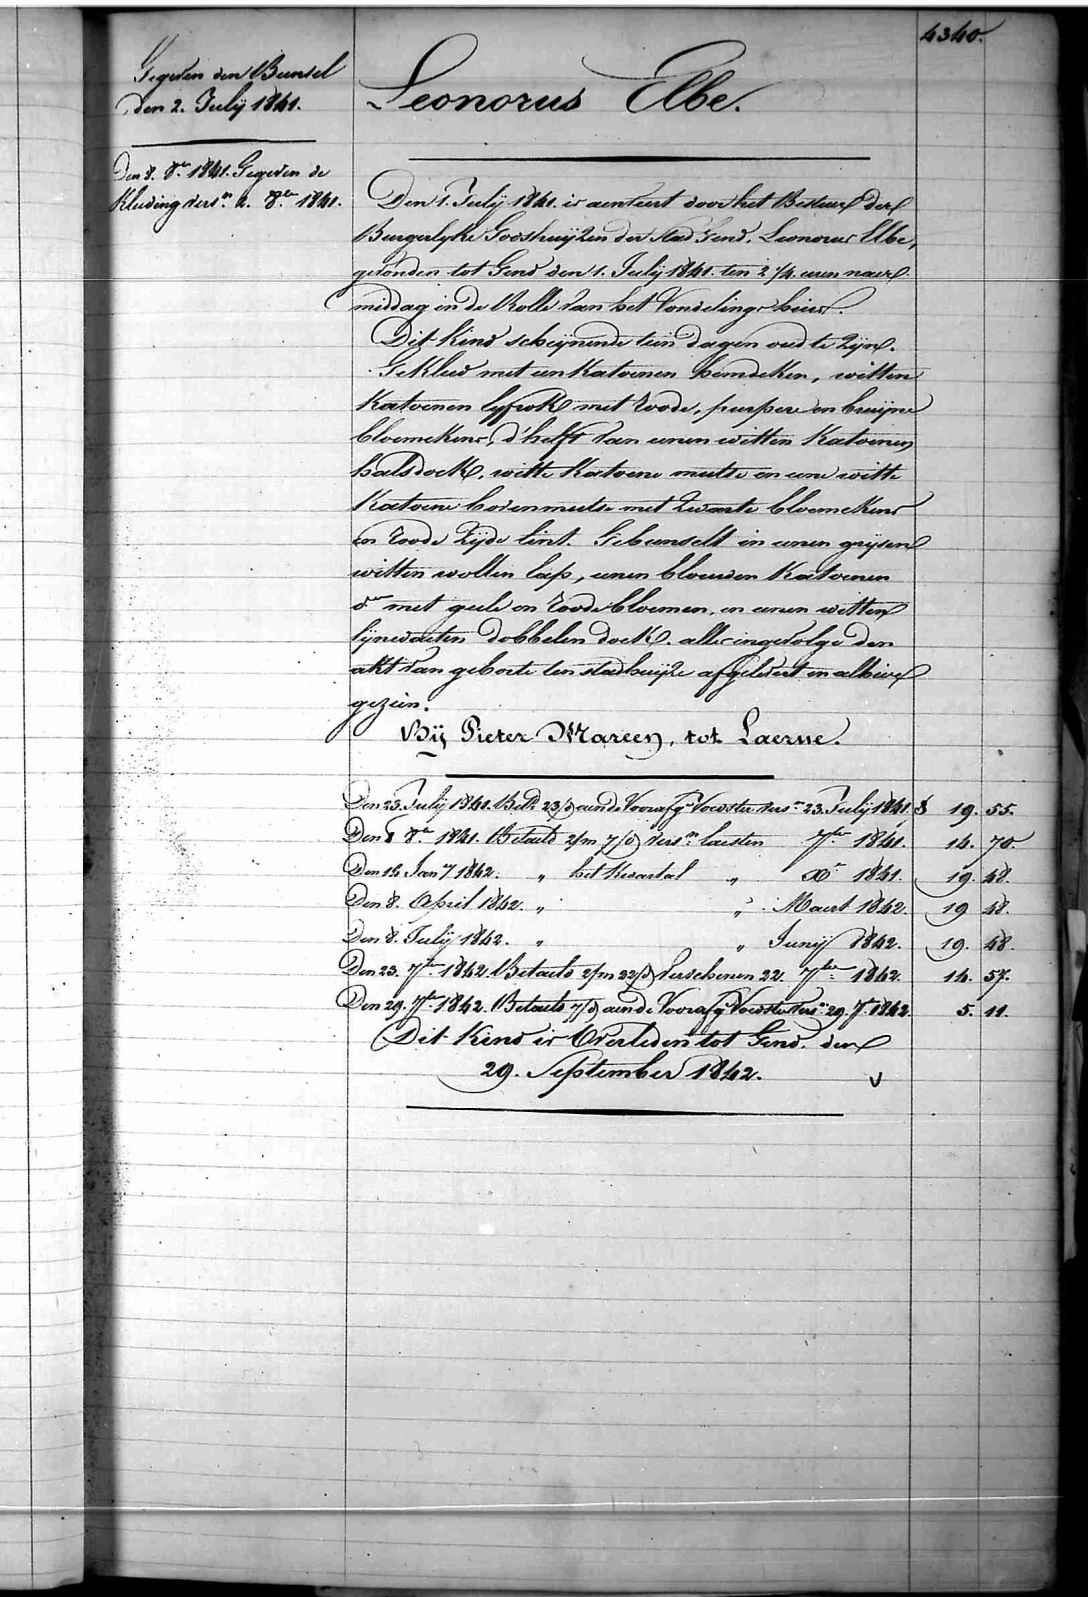 4340.
Gegeven den Bunsel
den 2. Julij 1841.
Den 8. 8er 1841. Gegeven de
kleeding versn. 4. 8er 1841.
Leonorus Elbe.
Den 1. Julij 1841. is aenveert door het Bestuur der
Burgerlyke Godshuijzen der stad Gend, Leonorus Elbe,
gevonden tot Gend den 1. Julij 1841. ten 2 1/4. uren naer
middag in de Rolle van het Vondelings huis.
Dit kind schijnende tien dagen oud te zijn.
Gekleed met een katoenen hemdeken, witten
katoenen lyfrok met roode, purpere en bruijne
bloemekens, d'helft van eenen witten katoenen
halsdoek, witte katoene mutse en eene witte
katoene bovenmutse met zwarte bloemekens
en roode zyde lint. Gebunselt in eenen grysen
witten wollen lap, eenen blouwen katoenen
do met geele en roode bloemen, en eenen witten
lijnwaeten dobbelen doek. alles ingevolge den
akt van geboorte ten stadhuijze afgelevert en alhier
gezien.
Bij Pieter Mareen, tot Laerne.
Den 23. Julij 1841. Betd. 23/d aen de Voorafge Voedster versn 23. Julij 1841. 19. 55.
Den 8 8er 1841. Betaeld 2/m 7/d versn. laesten 7ber 1841. 14. 70.
Den 14 Jany 1842. " het kwartael " Xr 1841. 19. 48.
Den 8. April 1842. " " Maert 1842. 19 48.
Den 8. Julij 1842. " " Junij 1842. 19. 48.
Den 23. 7br 1842. Betaeld 2/m 22/d verschenen 22. 7ber 1842. 14. 57.
Den 29. 7br 1842. Betaeld 7/d aen de Voorafge Voedster versn 29. 7r 1842. 5. 11.
Dit kind is Overleden tot Gend. den
29. September 1842. v